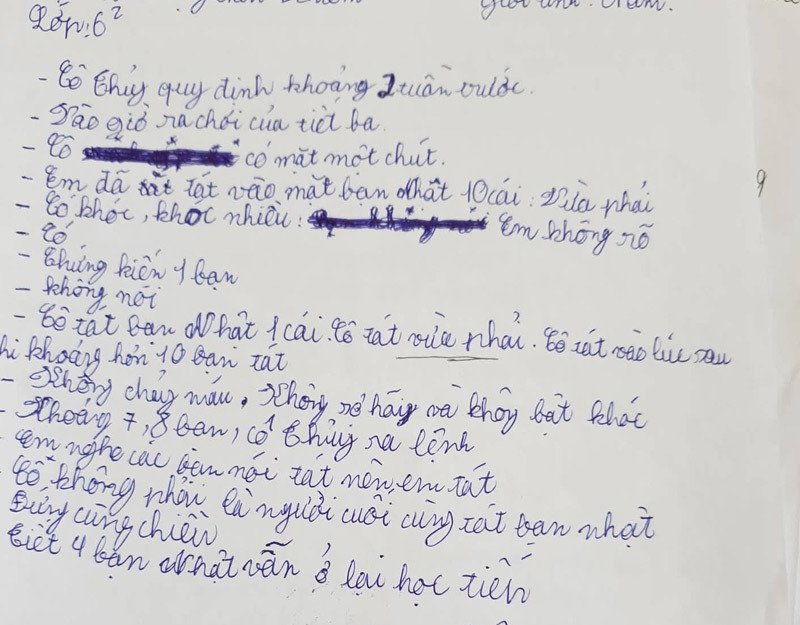 Lớp: 6²
- Cô Thủy quy định khoảng 2 tuần trước.
- Vào giờ ra chơi của tiết ba
- Cô có mặt một chút.
- Em đã tát vào mặt bạn Nhật 10 cái: Vừa phải
- Có khóc, khóc nhiều: Em không rõ
- Có
- Chứng kiến 1 bạn
- không nói
- Cô tát bạn Nhật 1 cái. Cô tát vừa phải. Cô tát vào lúc sau
khi khoảng hơn 10 bạn tát
- Không chảy máu, Không và không bật khóc
- Khoảng 7, 8 bạn, cô Thủy ra lệnh
- Em nghe các bạn nói tát nên em tát
- Cô không phải là người cuối cùng tát bạn nhật
Đứng cùng chiều
Tiết 4 bạn Nhật vẫn ở lại học tiến
9